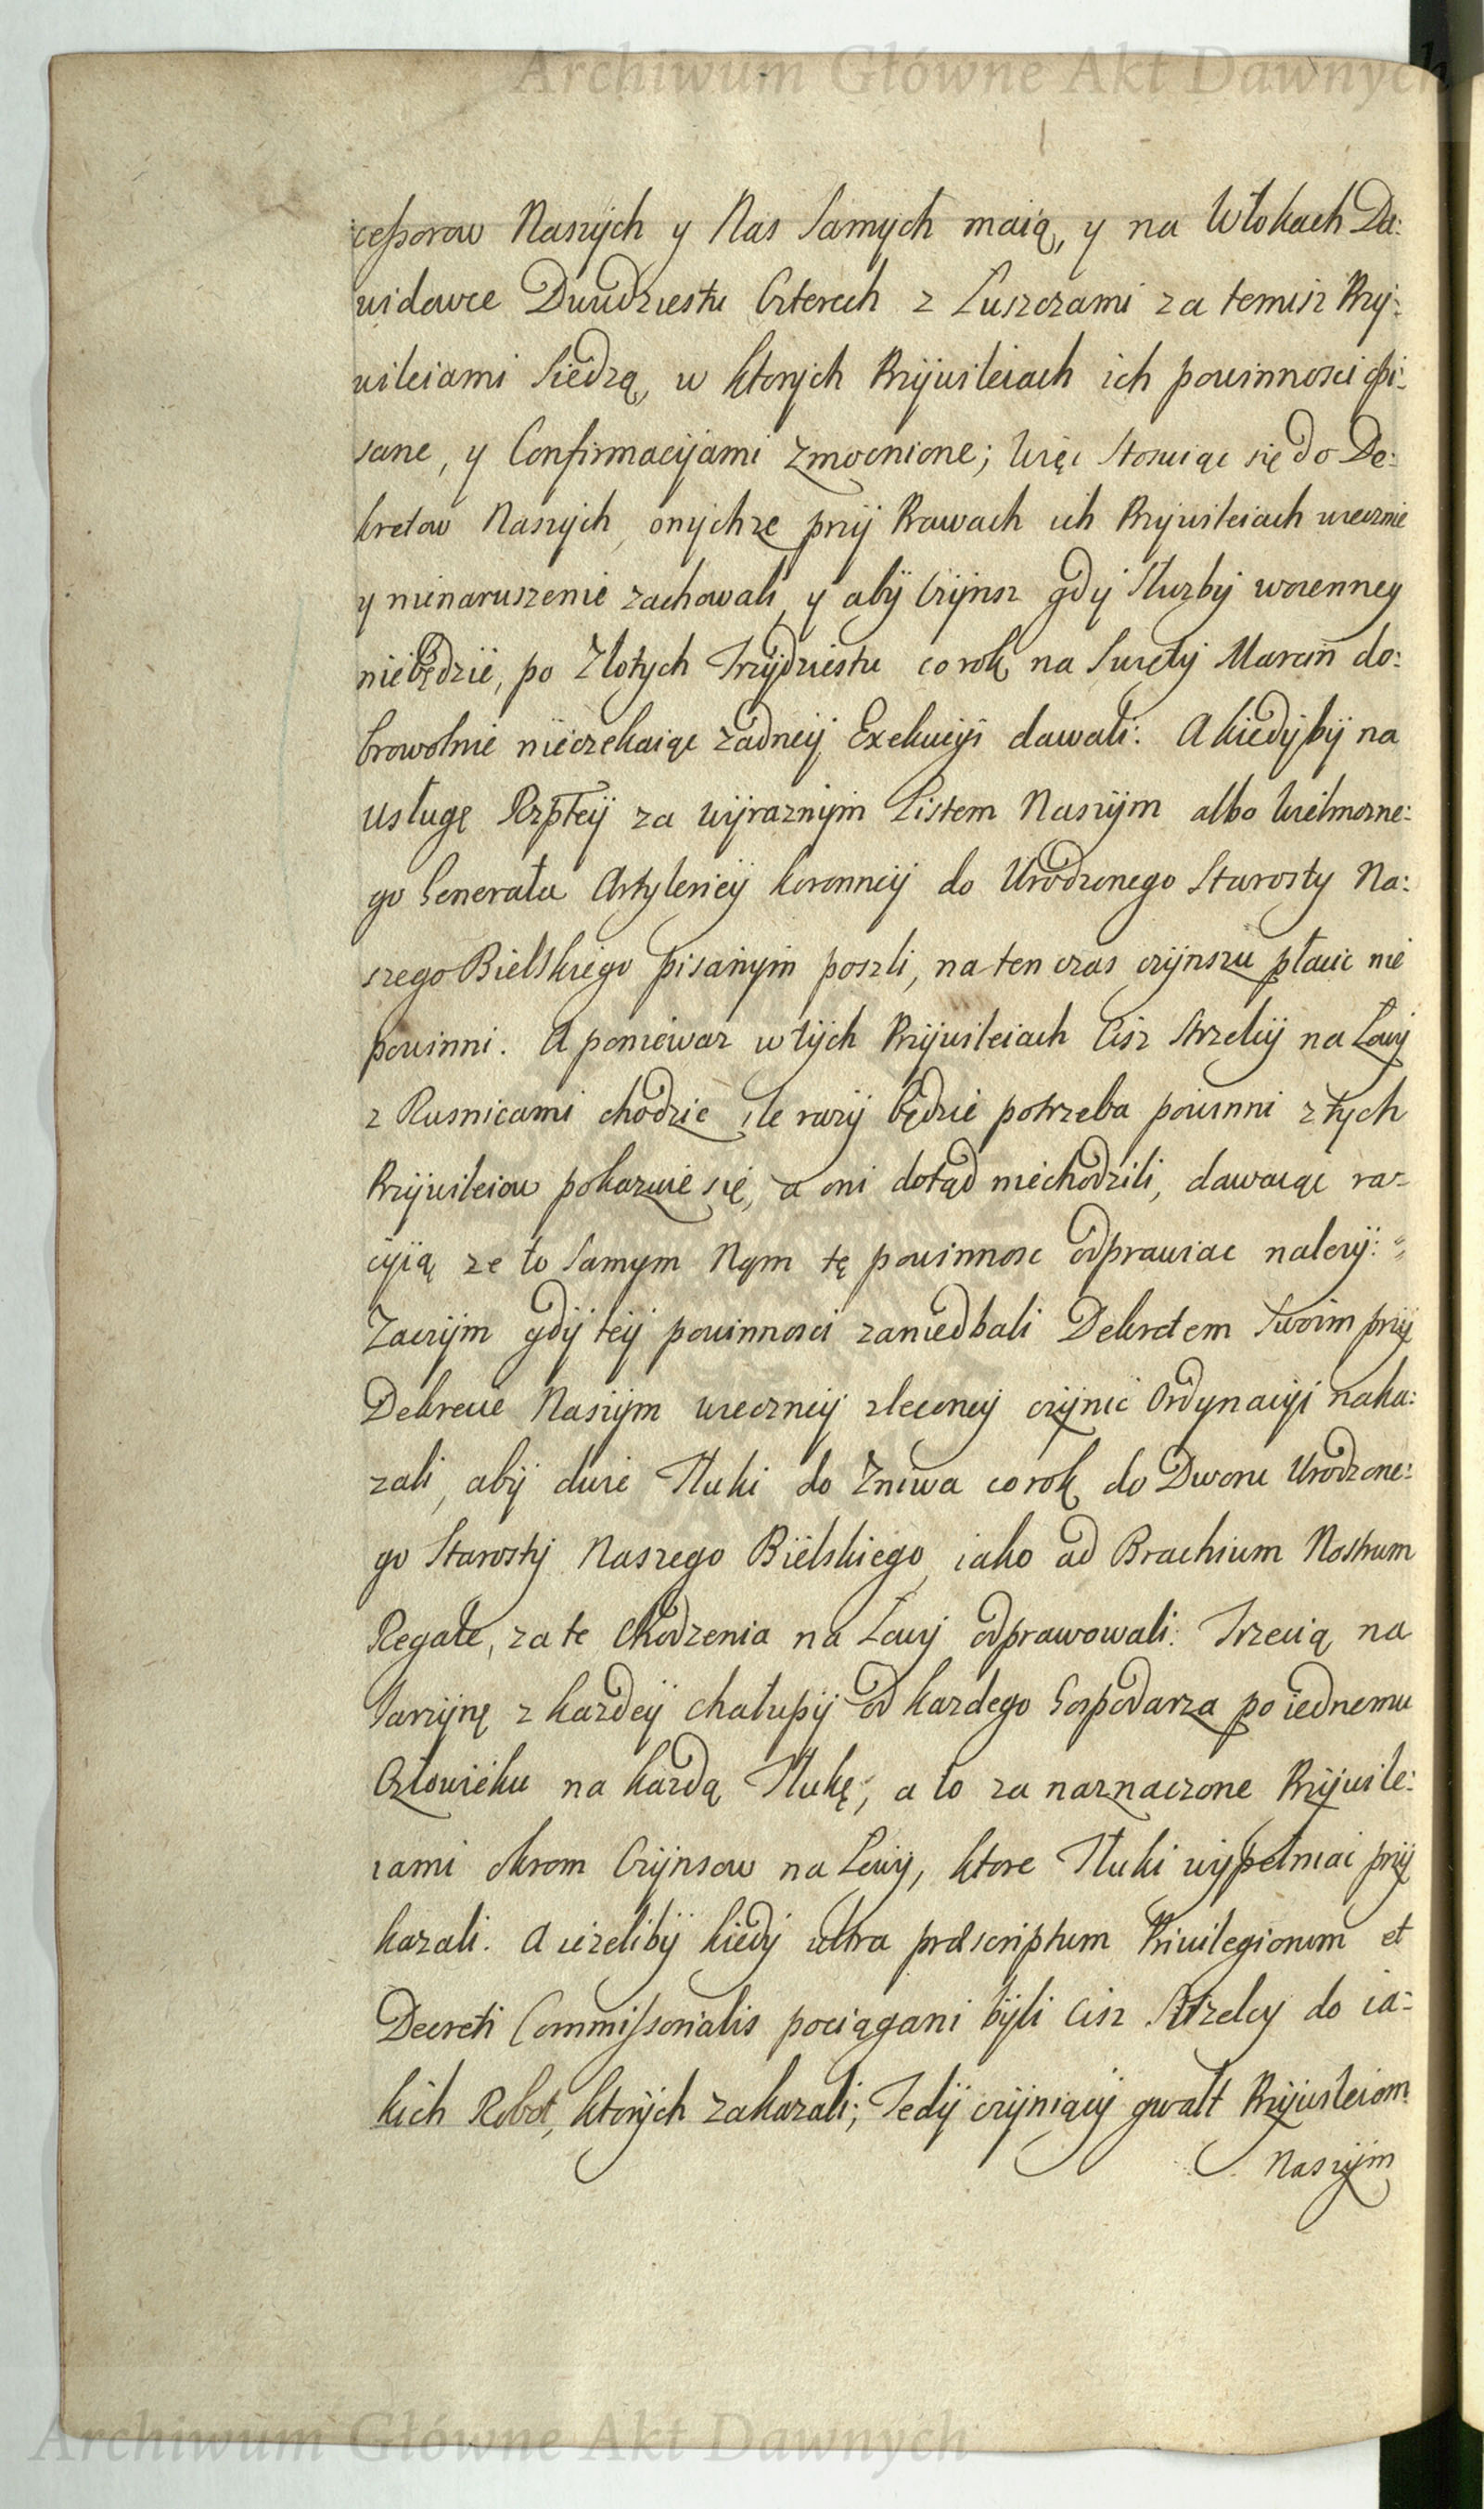 Archiwum Główne Akt Dawnych
cessorow Naszych y Nas Samych maią, y na Włokach Da:
widowce Dwudziestu Czterech z Puszczami za temisz Przy:
wileiami Siedzą, w ktorych Przywileiach ich powinnosci opi:
sane, y Confirmacyjami zmocnione; Więc Stosuiąc się do De:
kretow Naszych, onychze przy Prawach ich Przywileiach wiecznie
y nienaruszenie zachowali, y aby Czynsz gdy Słuzby woienney
niebędzie, po Złotych Trzydziestu corok na Swięty Marcin do:
browolnie nieczekaiąc zadney Exekucyi dawali: A kiedyby na
usługę Rzpltey za wyraznym Listem Naszym albo Wielmozne:
go Generała Artyleriey koronney do Urodzonego Starosty Na:
szego Bielskiego pisanym poszli, na ten czas czynszu płacic nie
powinni. A poniewaz w tych Przywileiach Cisz Strzelcy na Łowy
z Rusnicami chodzic ile razy będzie potrzeba powinni z tych
Przywileiow pokazuie się, a oni dotąd niechodzili, dawaiąc ra-
cyią ze to Samym Nam tę powinnosc odprawiac nalezy:
Zaczym gdy tey powinnosci zaniedbali Dekretem Swoim przy
Dekrecie Naszym wieczney zleconey czynic Ordynacyi naka:
zali, aby dwie Tłuki do Zniwa corok do Dworu Urodzone:
go Starosty Naszego Bielskiego, iako ad Brachium Nostrum
Regale, za te Chodzenia na Łowy odprawowali: Trzecią na
Jarzynę z kazdey chałupy od kazdego Gospodarza po iednemu
Człowieku na kazdą Tłukę; a to za naznaczone Przywile:
iami okrom Czynsow na Łowy, ktore Tłuki wypełniac przy
kazali. A iezeliby kiedy ultra præscriptum Privilegiorum et
Decreti Commissorialis pociągani byli Cisz Strzelcy do ia:
kich Robot, ktorych zakazali; Tedy czyniący gwałt Przywileiom
Naszym
Archiwum Główne Akt Dawnych